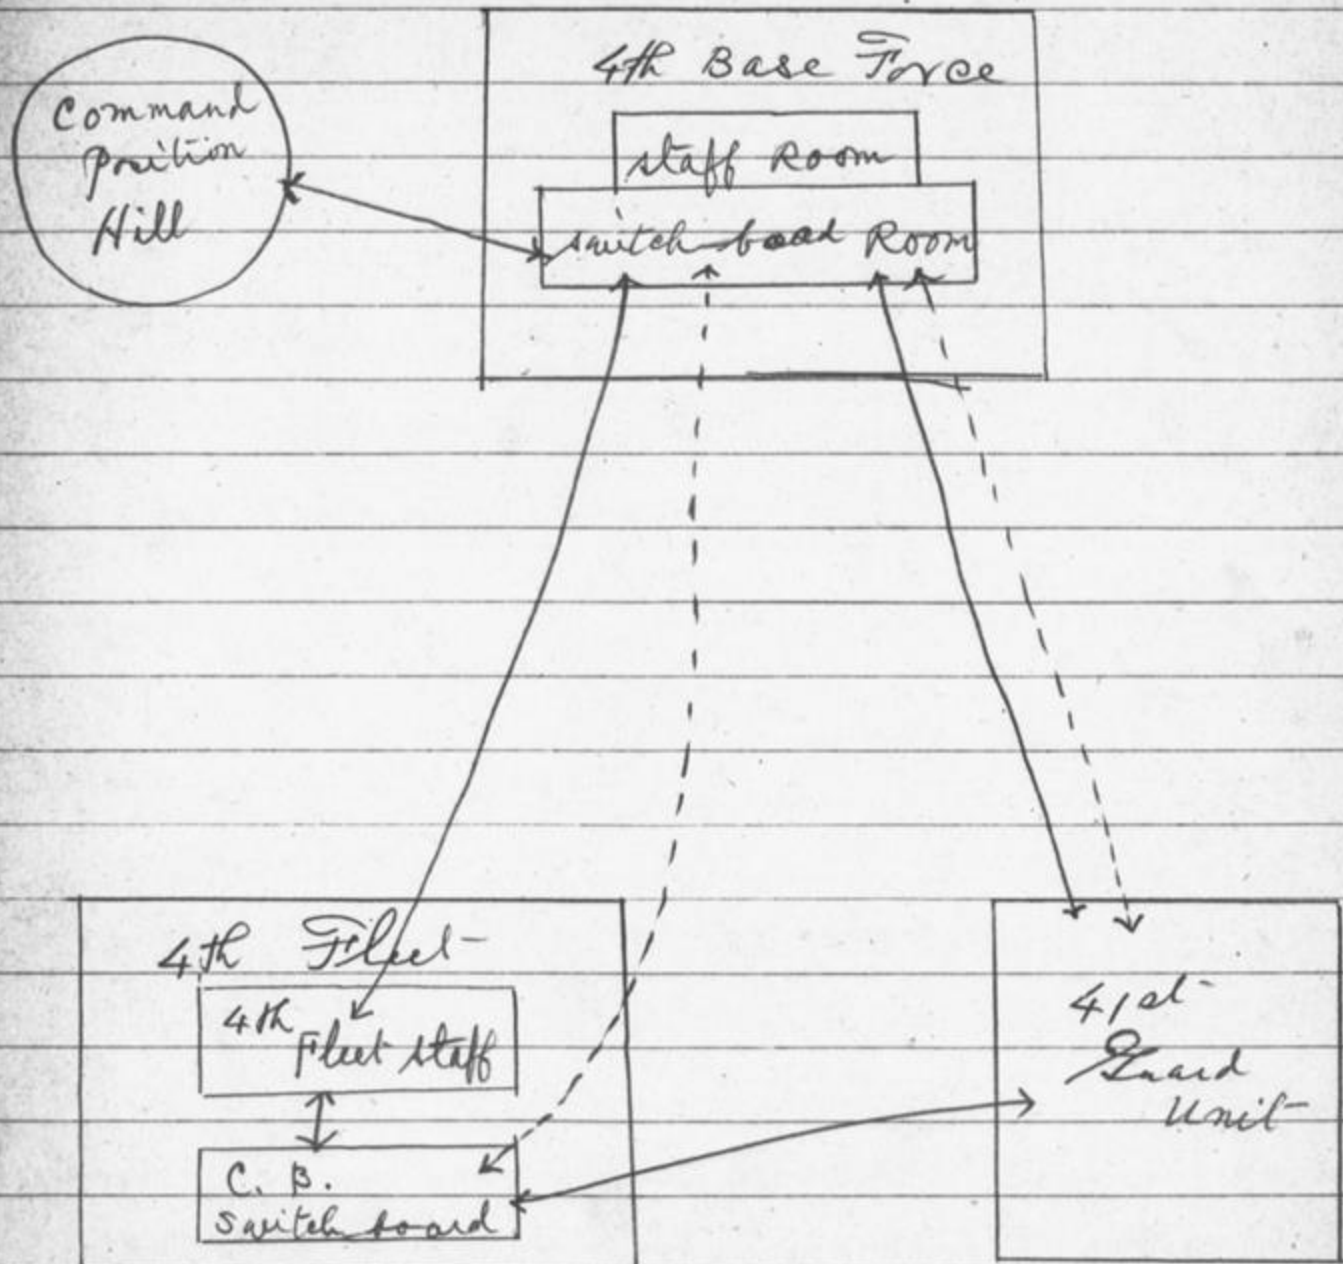 Command
Position
Hill
4th Base Force
Staff Room
Switch board Room
4th Fleet
4th
Fleet Staff
C. B.
Switch board
41st
Guard
Unit